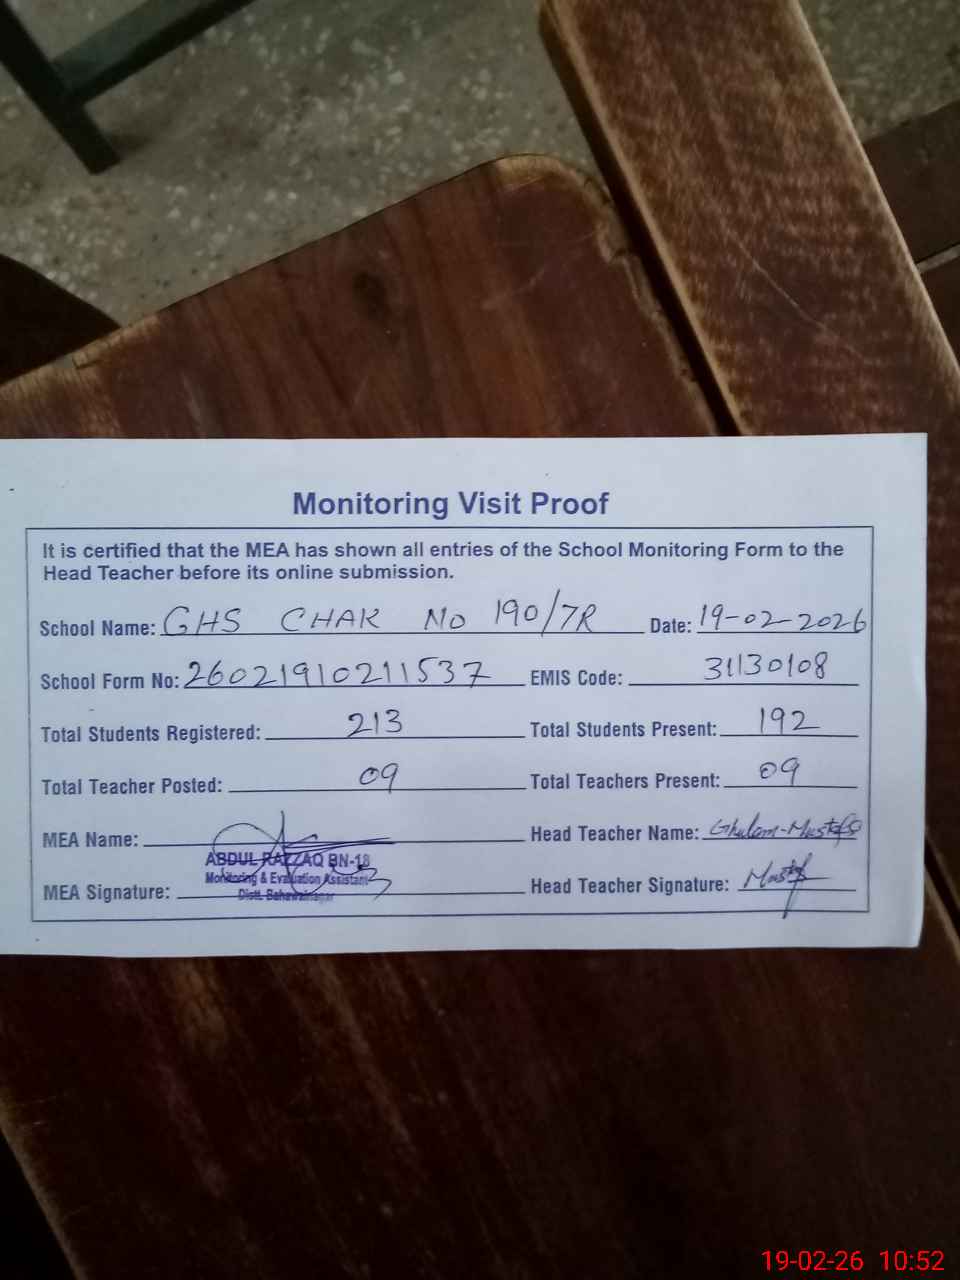 Monitoring Visit Proof
It is certified that the MEA has shown all entries of the School Monitoring Form to the
Head Teacher before its online submission.
School Name: GHS CHAK NO 190/7R Date: 19-02-2026
School Form No: 26021910211537 EMIS Code: 31130108
Total Students Registered: 213 Total Students Present: 192
Total Teacher Posted: 09 Total Teachers Present: 09
MEA Name: Head Teacher Name: Ghulam-Mustafa
ABDUL RAZZAQ BN-18
Monitoring & Evaluation Assistant
MEA Signature: Head Teacher Signature: Mustafa
Distt. Bahawalnagar
19-02-26 10:52